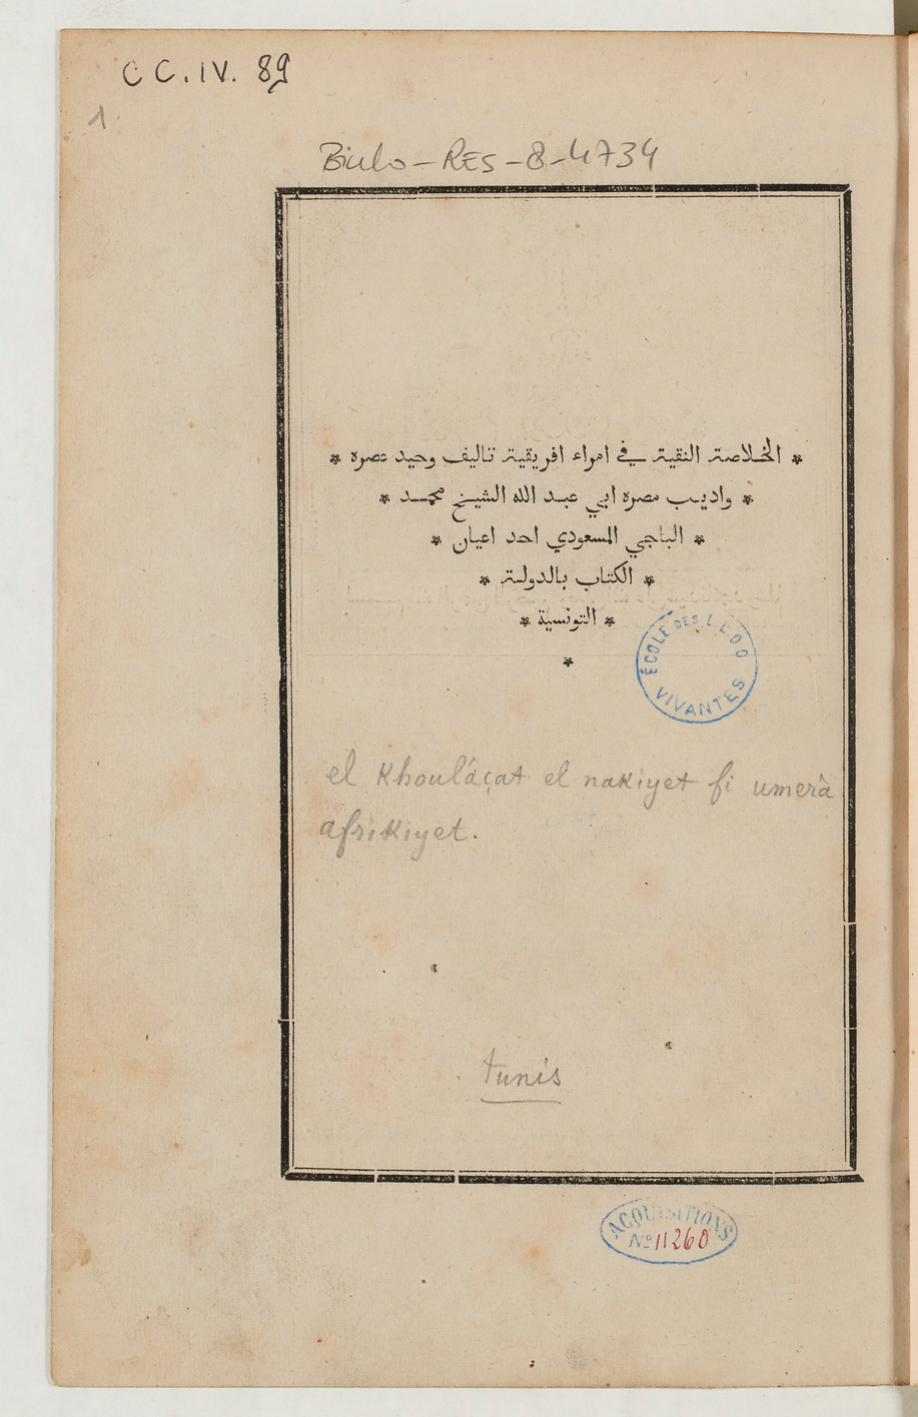 CC.IV. 89
1
Biulo-RES-8-4734
* الخلاصة النقية في امراء افريقية تاليف وحيد عصره *
* واديب مصره ابي عبد الله الشيخ محمد *
* الباجي المسعودي احد اعيان *
* الكتاب بالدولة *
* التونسية *
*
ÉCOLE DES L.L.O.O
VIVANTES
el Khoulâçat el nakiyet fi umerà
afrikiyet.
tunis
ACQUISITIONS
Nº 11260